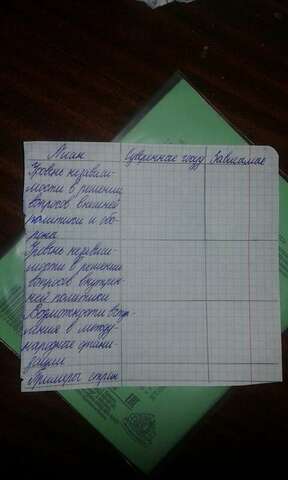 План Суверенное госуд Зависимое
Уровень независи-
мости в решении
вопросов внешней
политики и обо-
роны
Уровень независи-
мости в решении
вопросов внутрен-
ней политики
Возможность вступ
ления в между-
народные органи-
зации
Примеры стран